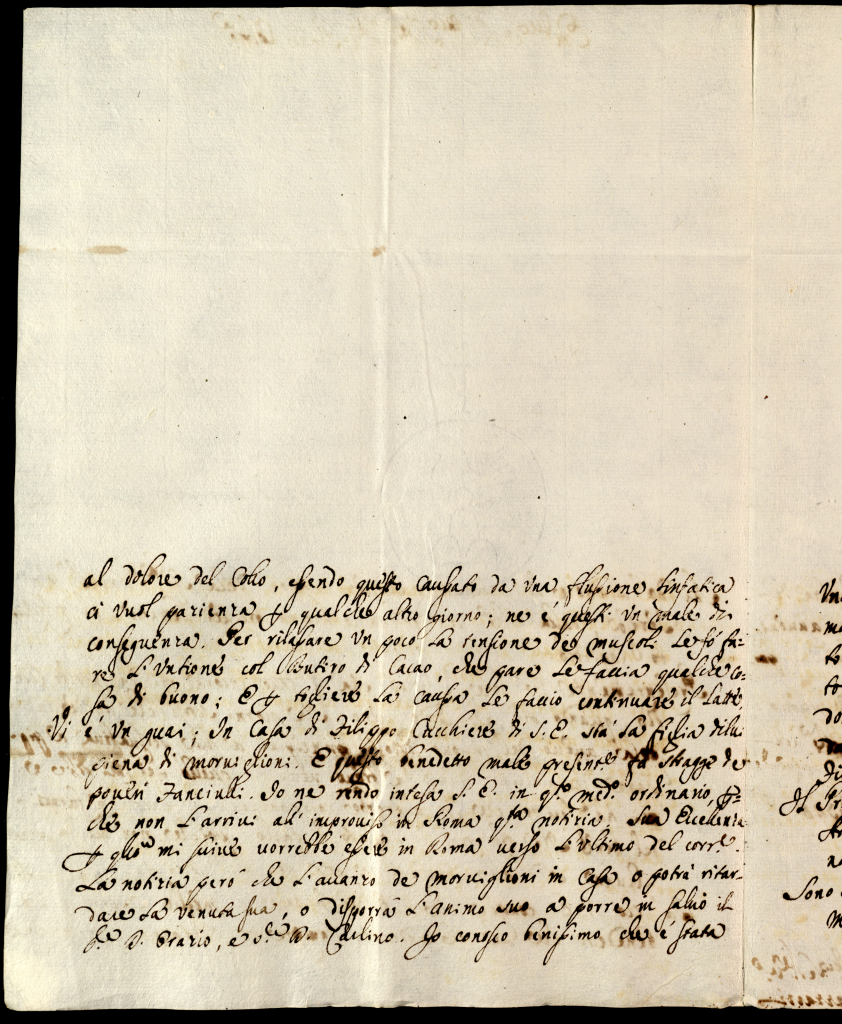 al dolore del Collo, essendo questo causato da una flussione linfatica
ci vuol pazienza p qualche altro giorno; ne è questi un male di
conseguenza. Per rilassare un poco la tensione de muscoli le fò fa:
re l'untione col Butiro di Cacao, che pare le faccia qualche co:
sa di buono; E p togliere la causa le faccio continuare il latte,
Vi è un guai; In Casa di Filippo Cocchiere di S. E. stà la figlia di lui
piena di morviglioni. E questo benedetto male presente fà stragge de
poveri Fanciulli. Io ne rendo intesa S. E. in q.o med.o ordinario, p
che non l'arrivi all'improviso in Roma q.ta notizia. Sua Eccellenza
p q.to mi scrive vorrebbe essere in Roma verso l'ultimo del corr.e
La notizia però che l'avanzo de morviglioni in Casa o potrà ritar-
dare la venuta sua, o disporrà l'animo suo a porre in salvo il
S.r D. Orazio, e S.r D. Carlino. Io conosco benissimo che è stata
Sono